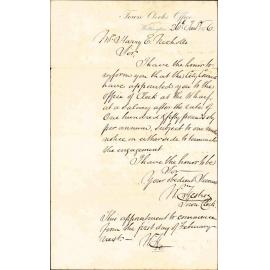 Town Clerk's Office
Wellington, 26th Jany 
Mr Harry E. Nicholls
Sir,
I have the honor to
inform you that the City Council
have appointed you to the
office of Clerk at the Wharf
at a salary after the rate of
One hundred & fifty pounds
per annum, subject to one
notice on either side to terminate
the engagement
I have the honor to be
Sir
Your obedient Servant
Town Clerk
This appointment to commence
from the first day of February
next